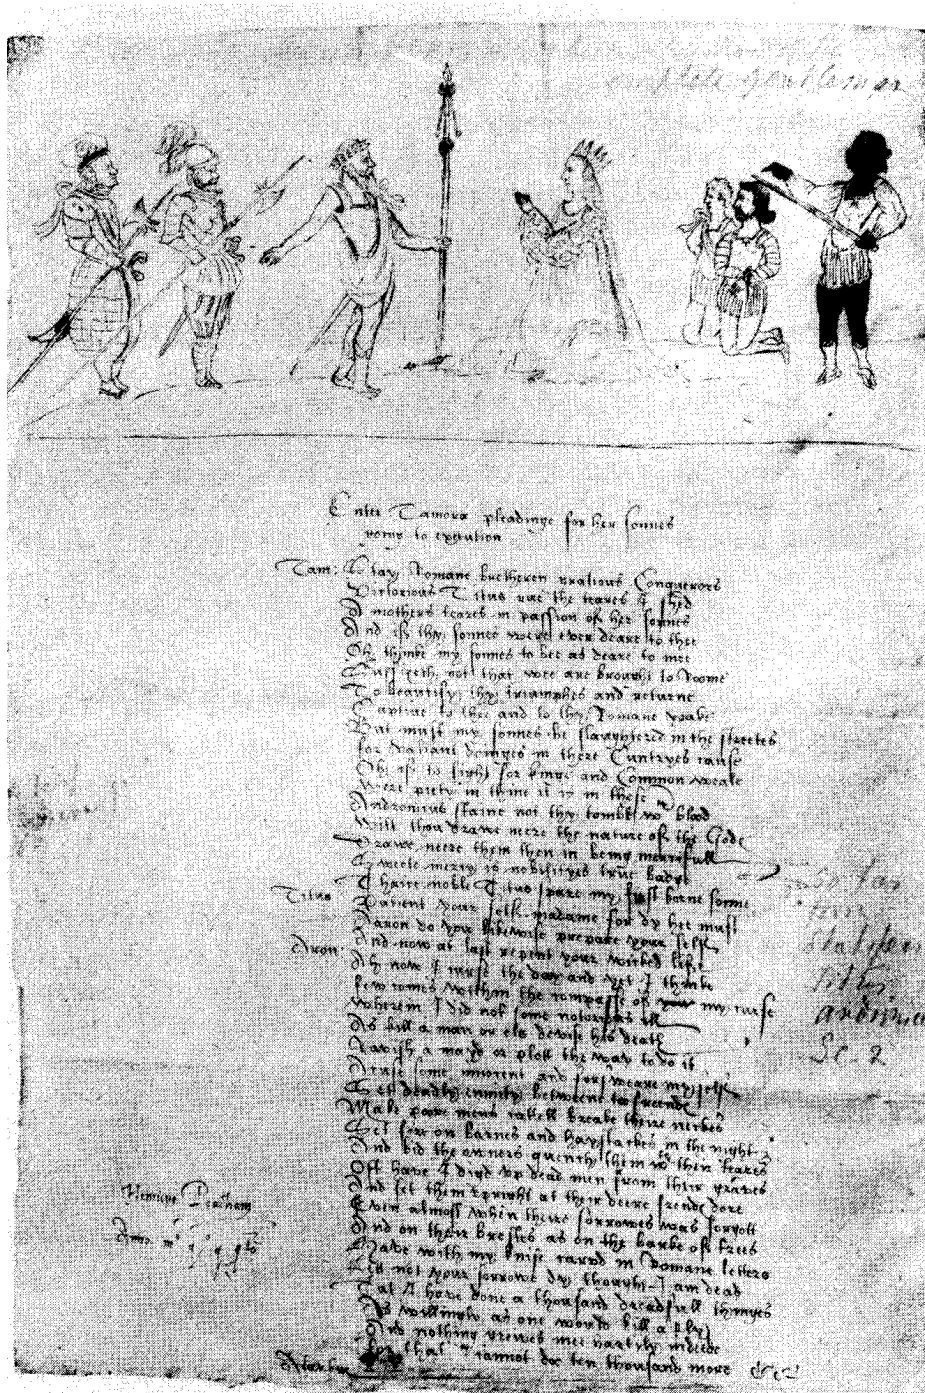 complete gentleman
Enter Tamora pleadinge for her sonnes
going to execution
Tam: Stay Romane bretheren gratious Conquerors
Victorious Titus rue the teares I shed
A mothers teares in passion of her sonnes
And if thy sonnes were ever deare to thee
Oh thinke my sonnes to bee as deare to mee
Suffizeth not that wee are brought to Roome
To beautify thy triumphes and returne
Captive to thee and to thy Romane yoake
But must my sonnes be slaughtered in the streetes
for valiant doinges in there Cuntryes cause
Oh if to fight for kinge and Common weale
Were piety in thine it is in these
Andronicus staine not thy tombe wth blood
Wilt thou drawe neere the nature of the Gods
Drawe neere them then in being mercifull
Sweete mercy is nobilityes true badge
Thrice noble Titus spare my first borne sonne
Titus Patient your self madame for dy hee must
Aaron do you likewise prepare your self
And now at last repent your wicked life
Aron: Ah now I curse the day and yet I thinke
few comes within the compasse of my curse
Wherein I did not some notorious ill
As kill a man or els devise his death
Ravish a mayd or plott the way to do it
Acuse some innocent and forsweare myself
Set deadly enmity betweene to freendes
Make poore mens cattell breake theire neckes
Set fire on barnes and haystackes in the night
And bid the owners quench them wth their teares
Oft have I digd vp dead men from their graves
And set them vpright at their deere frendes dore
Even almost when theire sorrowes was forgott
And on their brestes as on the barke of trees
Have with my knife carvd in Romane letters
Let not your sorrowe dy though I am dead
Tut I have done a thousand dreadfull thinges
As willingly as one would kill a fly
And nothing greives mee hartily indeede
for that I cannot doo ten thousand more &c
Alarbus
so far
from
Shakspear
Titus
Andronicus
Sc. 2
Henricus Peacham
Anno